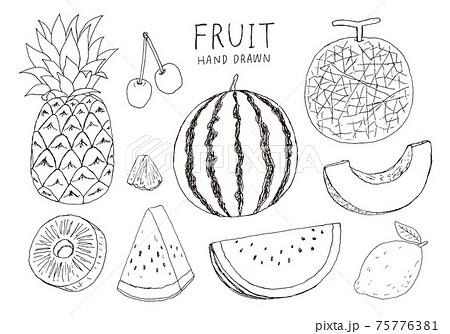 FRUIT
HAND DRAWN
PIXTA
pixta.jp - 75776381